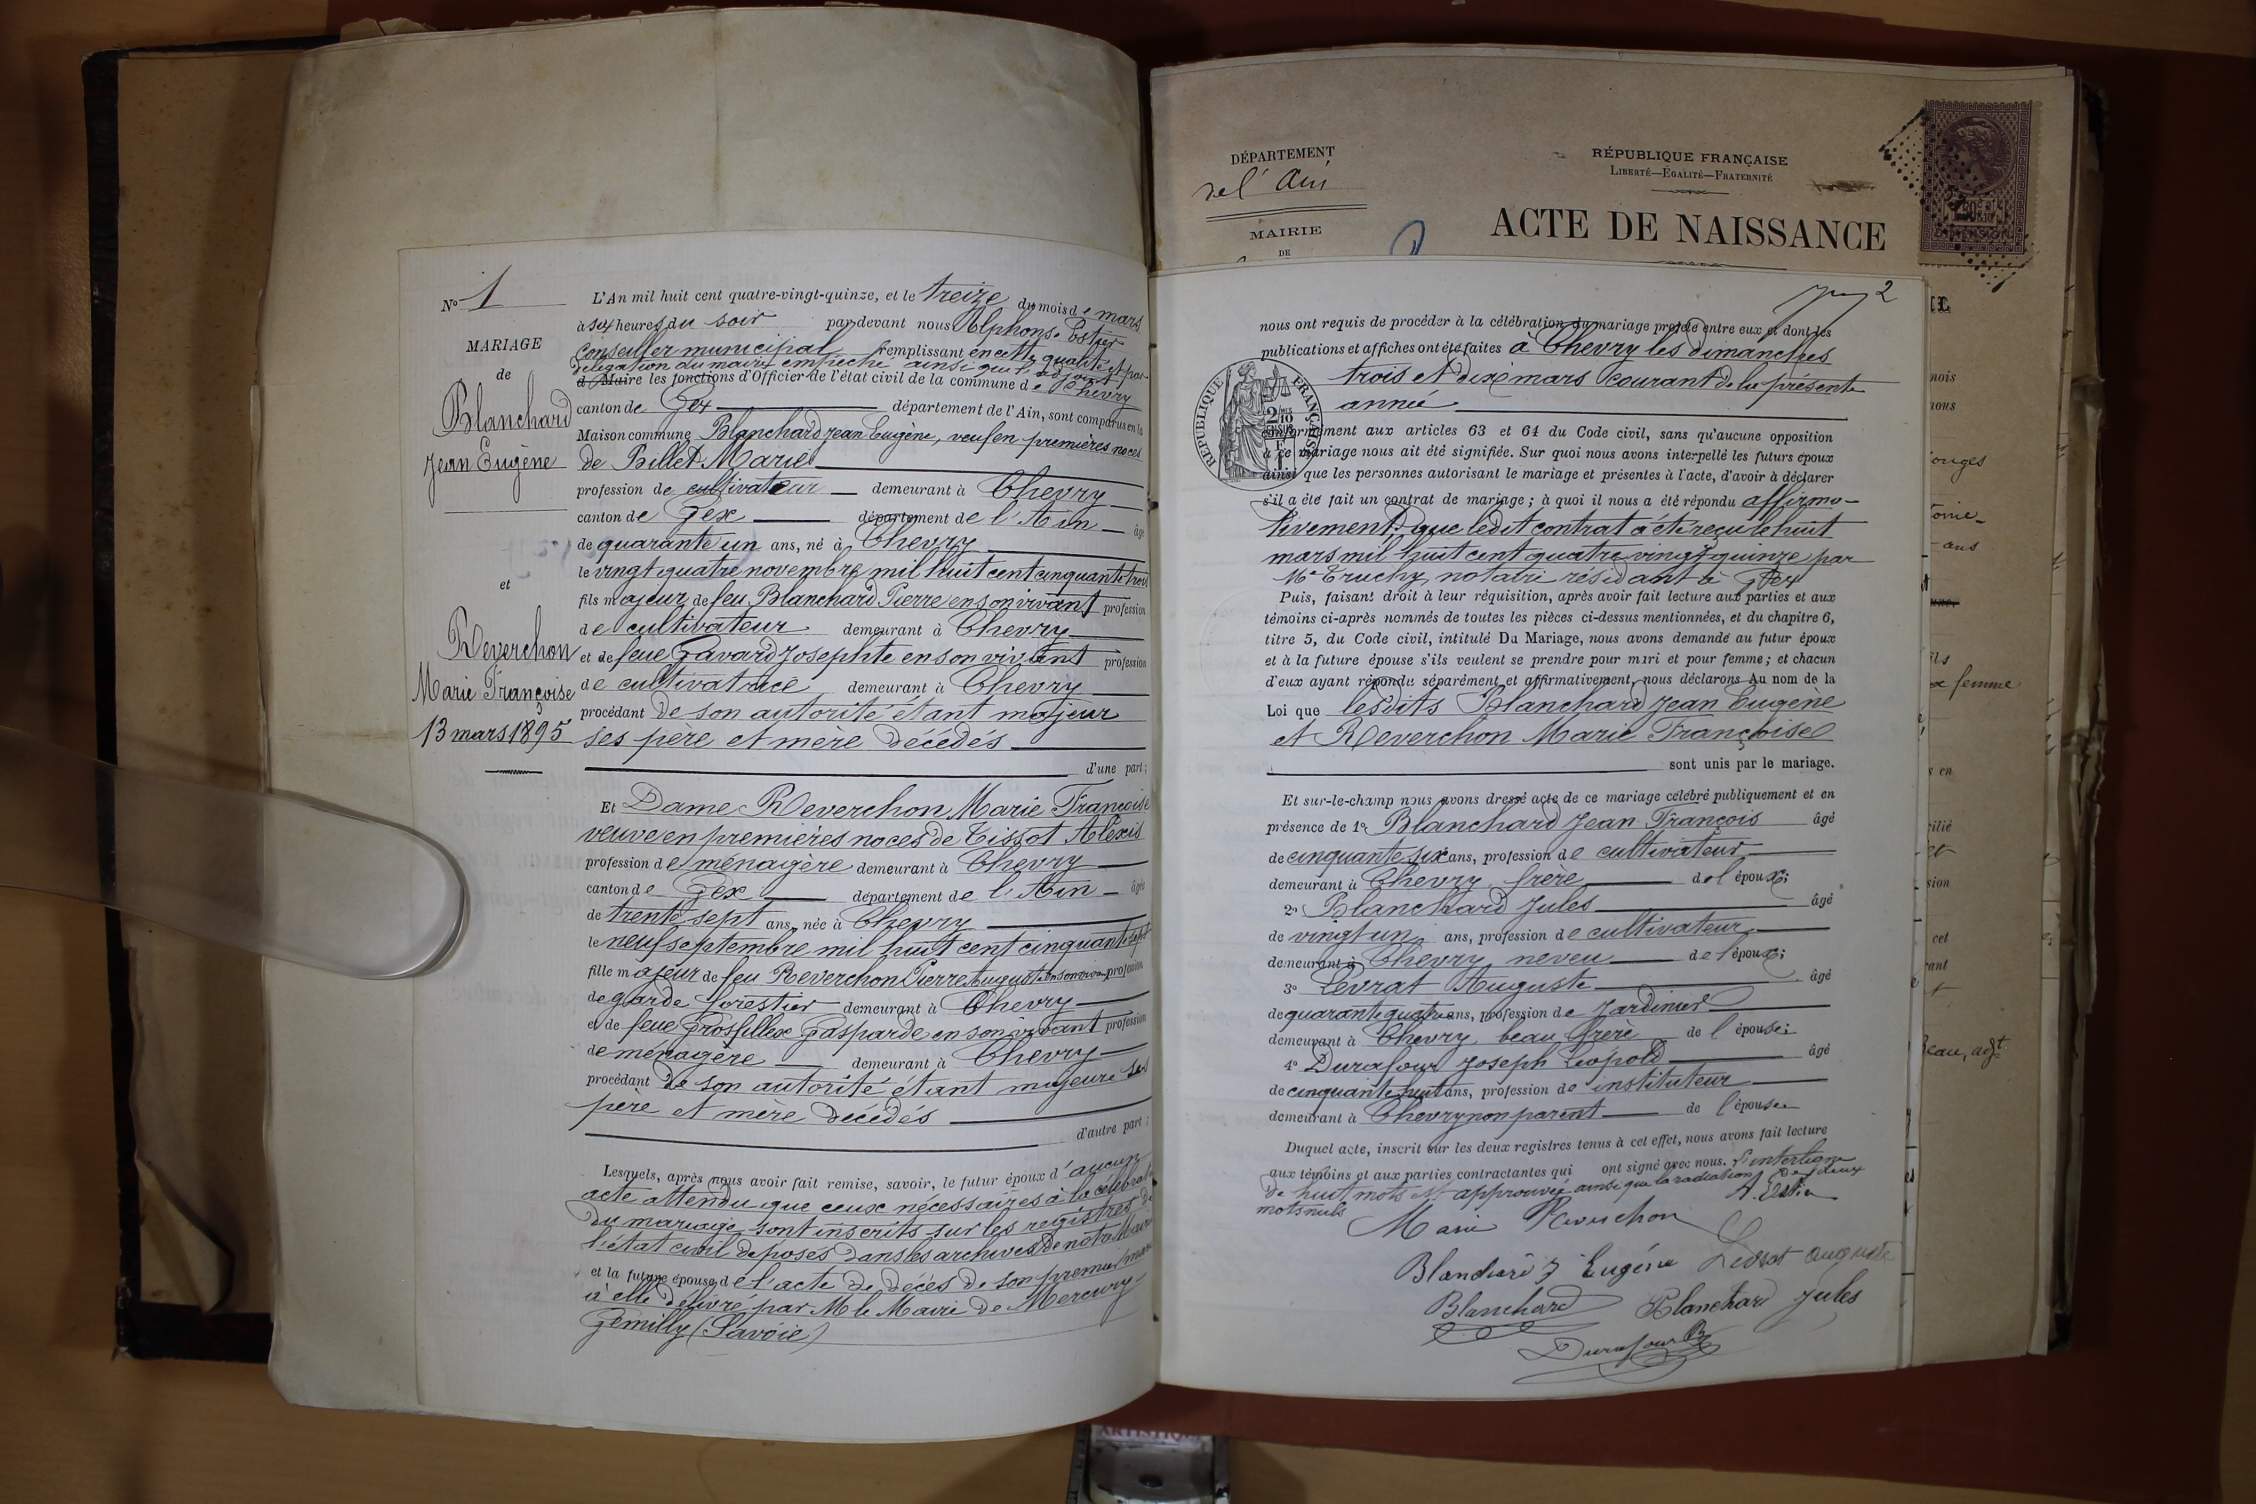 N° 1
MARIAGE
de
Blanchard
Jean Eugène
et
Reverchon
Marie Françoise
13 mars 1895
L'An mil huit cent quatre-vingt-quinze, et le treize du mois de mars
à six heures du soir par-devant nous Alphonse Estier
Conseiller municipal remplissant en cette qualité et par
délégation du maire empêché ainsi que l'adjoint
d Maire les fonctions d'Officier de l'état civil de la commune de Chevry
canton de Gex département de l'Ain, sont comparus en la
Maison commune Blanchard Jean Eugène, veuf en premières noces
de Billet Marie
profession de cultivateur demeurant à Chevry
canton de Gex département de l'Ain âgé
de quarante un ans, né à Chevry
le vingt quatre novembre mil huit cent cinquante trois
fils majeur de feu Blanchard Pierre en son vivant profession
de cultivateur demeurant à Chevry
et de feue Gavard Josephte en son vivant profession
de cultivatrice demeurant à Chevry
procédant de son autorité étant majeur
ses père et mère décédés
d'une part;
Et Dame Reverchon Marie Françoise
veuve en premières noces de Tissot Alexis
profession de ménagère demeurant à Chevry
canton de Gex département de l'Ain âgée
de trente sept ans, née à Chevry
le neuf septembre mil huit cent cinquante sept
fille majeur de feu Reverchon Pierre Auguste en son vivan profession
de garde forestier demeurant à Chevry
et de feue Grosfillex Gasparde en son vivant profession
de ménagère demeurant à Chevry
procédant de son autorité étant majeure ses
père et mère décédés
d'autre part;
Lesquels, après nous avoir fait remise, savoir, le futur époux d'aucun
acte attendu que ceux nécessaires à la célébrat
du mariage sont inscrits sur les registres de
l'état civil déposés dans les archives de notre Mairie
et la future épouse, de l'acte de décès de son premier mari
à elle délivré par M le Maire de Mercury-
Gemilly (Savoie)
DÉPARTEMENT
de l'Ain
MAIRIE
DE
RÉPUBLIQUE FRANÇAISE
LIBERTÉ—EGALITÉ—FRATERNITÉ
ACTE DE NAISSANCE
2
nous ont requis de procéder à la célébration du mariage projeté entre eux et dont les
publications et affiches ont été faites à Chevry les dimanches
trois et dix mars courant de la présente
année
RÉPUBLIQUE FRANÇAISE
conformément aux articles 63 et 64 du Code civil, sans qu'aucune opposition
à ce mariage nous ait été signifiée. Sur quoi nous avons interpellé les futurs époux
ainsi que les personnes autorisant le mariage et présentes à l'acte, d'avoir à déclarer
s'il a été fait un contrat de mariage; à quoi il nous a été répondu affirma-
tivement, que ledit contrat a été reçu le huit
mars mil huit cent quatre vingt quinze par
Me Truchy, notaire résidant à Gex
Puis, faisant droit à leur réquisition, après avoir fait lecture aux parties et aux
témoins ci-après nommés de toutes les pièces ci-dessus mentionnées, et du chapitre 6,
titre 5, du Code civil, intitulé Du Mariage, nous avons demandé au futur époux
et à la future épouse s'ils veulent se prendre pour mari et pour femme; et chacun
d'eux ayant répondu séparément et affirmativement, nous déclarons Au nom de la
Loi que lesdits Blanchard Jean Eugène
et Reverchon Marie Françoise
sont unis par le mariage.
Et sur-le-champ nous avons dressé acte de ce mariage célébré publiquement et en
présence de 1° Blanchard Jean François âgé
de cinquante six ans, profession de cultivateur
demeurant à Chevry frère de l'époux;
2° Blanchard Jules âgé
de vingt un ans, profession de cultivateur
demeurant à Chevry neveu de l'époux;
3° Levrat Auguste âgé
de quarante quatre ans, profession de jardinier
demeurant à Chevry beau frère de l'épouse;
4° Durafour Joseph Léopold âgé
de cinquante huit ans, profession de instituteur
demeurant à Chevry non parent de l'épouse
Duquel acte, inscrit sur les deux registres tenus à cet effet, nous avons fait lecture
aux témoins et aux parties contractantes qui ont signé avec nous. L'interligne
de huit mots est approuvée ainsi que la radiation de deux
mots nuls A. Estier
Marie Reverchon
Blanchard J Eugène Levrat auguste
Blanchard Blanchard Jules
Durafour
nois
nous
ouges
ans
femme
s en
cilié
et
sion
cet
rant